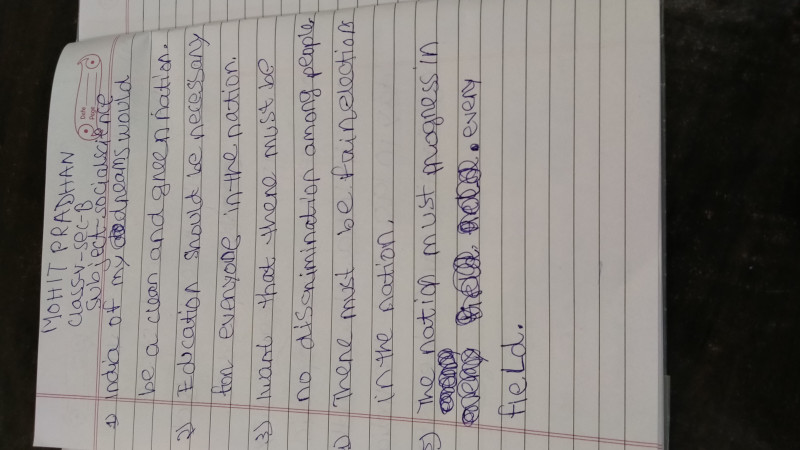 MOHIT PRADHAN
Class-V-sec-B
Subject-socialscience
Date
Page
1) India of my dreams would
be a clean and green nation.
2) Education should be necessary
for everyone in the nation.
3) I want that there must be
no discrimination among people.
4) There must be fair elections
in the nation.
5) The nation must progress in
every
field.